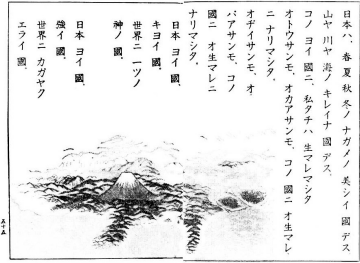 日本ハ、春夏秋冬ノ ナガメノ 美シイ 國 デス。
山ヤ 川ヤ 海ノ キレイナ 國 デス。
コノ ヨイ 國ニ、私タチハ 生マレマシタ
オトウサンモ、オカアサンモ、コノ 國ニ オ生マレ
ニ ナリマシタ。
オヂイサンモ、オ
バアサンモ、コノ
國ニ オ生マレニ
ナリマシタ。
日本 ヨイ 國、
キヨイ 國。
世界ニ 一ツノ
神ノ 國。
日本 ヨイ 國、
強イ 國。
世界ニ カガヤク
エライ 國。
五十五